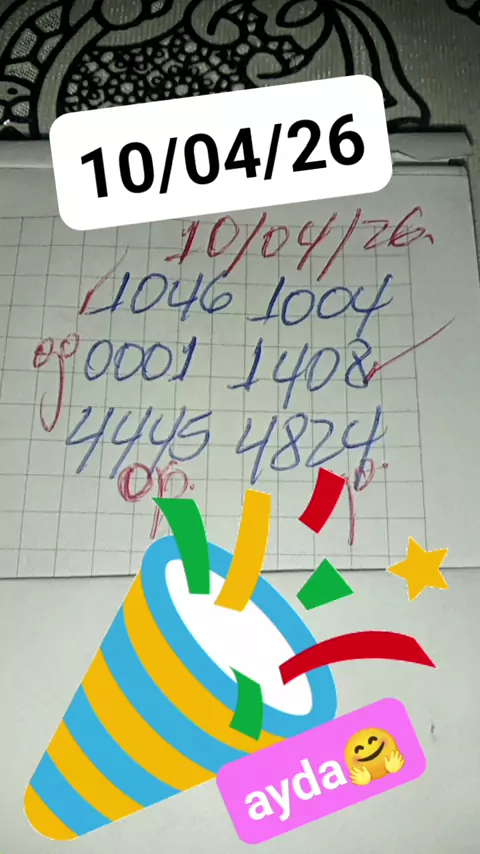 10/04/26
10/04/26.
1046 1004
0001 1408
4445 4824
op.
p.
ayda